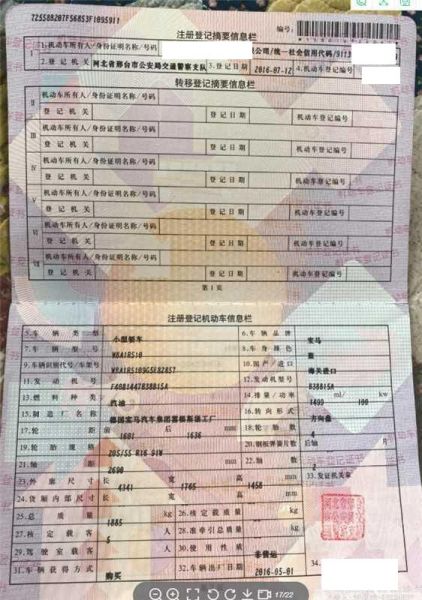 注册登记摘要信息栏
编号:
1.机动车所有人/身份证明名称/号码 公司/统一社会信用代码/
2.登记机关 河北省邢台市公安局交通警察支队 3.登记日期 2016-07-12 4.
转移登记摘要信息栏
II 机动车所有人/身份证明名称/号码
登记机关 登记日期 机动车登记编号
III 机动车所有人/身份证明名称/号码
登记机关 登记日期 机动车登记编号
IV 机动车所有人/身份证明名称/号码
登记机关 登记日期 机动车登记编号
V 机动车所有人/身份证明名称/号码
登记机关 登记日期 机动车登记编号
VI 机动车所有人/身份证明名称/号码
登记机关 登记日期 机动车登记编号
VII 机动车所有人/身份证明名称/号码
登记机关 登记日期 机动车登记编号
第1页
注册登记机动车信息栏
5.车辆类型 小型轿车 6.车辆品牌 宝马
7.车辆型号 WBA1R510 8.车身颜色 蓝
9.车辆识别代号/车架号 10.国产/进口 海关进口
11.发动机号 12.发动机型号 B38B15A
13.燃料种类 汽油 14.排量/功率 1499 ml 100 kw
15.制造厂名称 德国宝马汽车集团雷根斯堡工厂 16.转向形式 方向盘
17.轮距 前 后 1636 mm 18.轮胎数
19.轮胎规格 205/55 R16 91W 20.钢板弹簧片数 后轴 片
21.轴距 2690 mm 22.轴数 2
23.外廓尺寸 长 4341 宽 1765 高 1458 mm 33.发证机关章
24.货厢内部尺寸 长 宽 高 mm
25.总质量 1885 kg 26.核定载质量 kg
27.核定载客 5 人 28.准牵引总质量 kg
29.驾驶室载客 人 30.使用性质 非营运
31.车辆获得方式 购买 32.车辆出厂日期 2016-05-01 34.
17/22